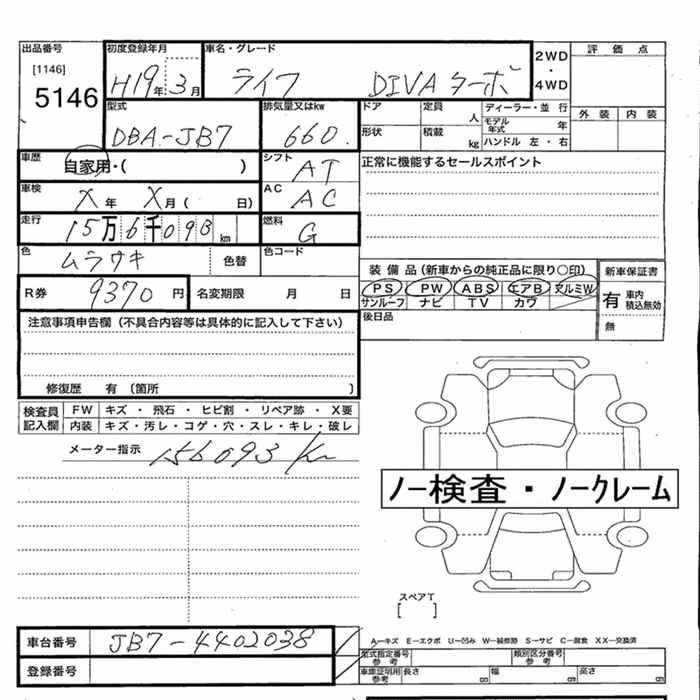 出品番号 初度登録年月 車名・グレード 2WD・4WD 評価点
[1146] 5146 H19年3月 ライフ DIVA ターボ 外装 内装
型式 排気量又はkw ドア 定員 人 ディーラー・並行
DBA-JB7 660. 形状 積載 kg モデル年式 年 ハンドル 左・右
車歴 自家用・( ) シフト AT 正常に機能するセールスポイント
車検 X年 X月( 日) AC AC
走行 15万6千093km 燃料 G
色 ムラサキ 色替 色コード
装備品(新車からの純正品に限り〇印) 新車保証書
R券 9370円 名変期限 月 日 PS PW ABS エアB アルミW 有 車内積込無効
サンルーフ ナビ TV カワ 無
注意事項申告欄(不具合内容等は具体的に記入して下さい) 後日品
修復歴 有(箇所 )
検査員記入欄 FW キズ・飛石・ヒビ割・リペア跡・X要
内装 キズ・汚レ・コゲ・穴・スレ・キレ・破レ
メーター指示 156093Km
ノー検査・ノークレーム
スペアT
[ ]
車台番号 JB7-4402038 A—キズ E—エクボ U—凹み W—補修跡 S—サビ C—腐食 XX—交換済
型式指定番号 参考 類別区分番号 参考
登録番号 車庫証明用 参考 長さ cm 幅 cm 高さ cm